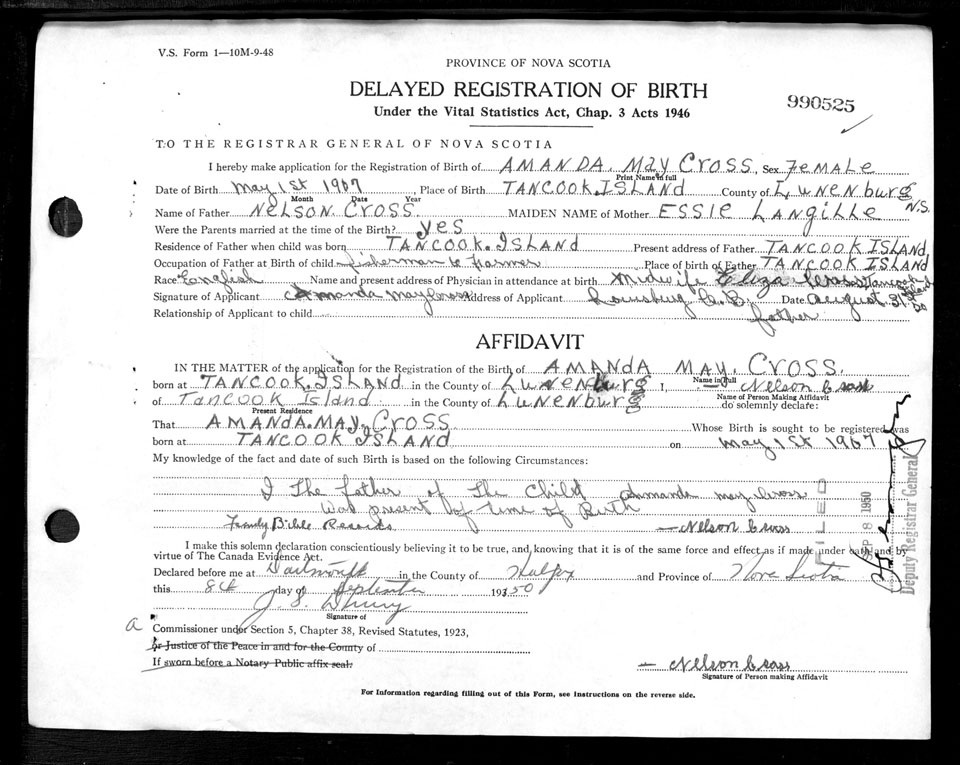 V.S. Form 1—10M-9-48
PROVINCE OF NOVA SCOTIA
DELAYED REGISTRATION OF BIRTH
990525
Under the Vital Statistics Act, Chap. 3 Acts 1946
TO THE REGISTRAR GENERAL OF NOVA SCOTIA
I hereby make application for the Registration of Birth of AMANDA. MAY CROSS, Sex FEMALE
Print Name in full
Date of Birth May 1st 1907, Place of Birth TANCOOK ISLAND County of LUNENburg N.S.
Month Date Year
Name of Father NELSON. CROSS MAIDEN NAME of Mother ESSIE LANGILLE
Were the Parents married at the time of the Birth? yes
Residence of Father when child was born TANCOOK. ISLAND Present address of Father TANCOOK ISLAND
Occupation of Father at Birth of child fisherman & Farmer Place of birth of Father TANCOOK ISLAND
Race English Name and present address of Physician in attendance at birth Midwife Eliza Cross
Signature of Applicant Amanda May Cross Address of Applicant Louisburg C.B. Date August 31
Relationship of Applicant to child father
AFFIDAVIT
IN THE MATTER of the application for the Registration of the Birth of AMANdA MAY. CROSS.
Name in full
born at TANCOOK. ISLAND in the County of LUNENburg I, Nelson Cross
Name of Person Making Affidavit
of TANCOOK Island in the County of LUNENburg do solemnly declare:
Present Residence
That AMANdA. MAY. CROSS Whose Birth is sought to be registered was
born at TANCOOK ISLAND on May 1st 1907
My knowledge of the fact and date of such Birth is based on the following Circumstances:
I The father of The Child Ammanda may Cross
Was present at time of Birth
Family Bible Records. — Nelson Cross
I make this solemn declaration conscientiously believing it to be true, and knowing that it is of the same force and effect as if made under oath and by
virtue of The Canada Evidence Act.
Declared before me at Dartmouth in the County of Halifax and Province of Nova Scotia
this 8th day of September 1950
Signature of
a Commissioner under Section 5, Chapter 38, Revised Statutes, 1923,
or Justice of the Peace in and for the County of
If sworn before a Notary Public affix seal.
— Nelson Cross
Signature of Person making Affidavit
For Information regarding filling out of this Form, see Instructions on the reverse side.
FILED
SEP 8 1950
Deputy Registrar General